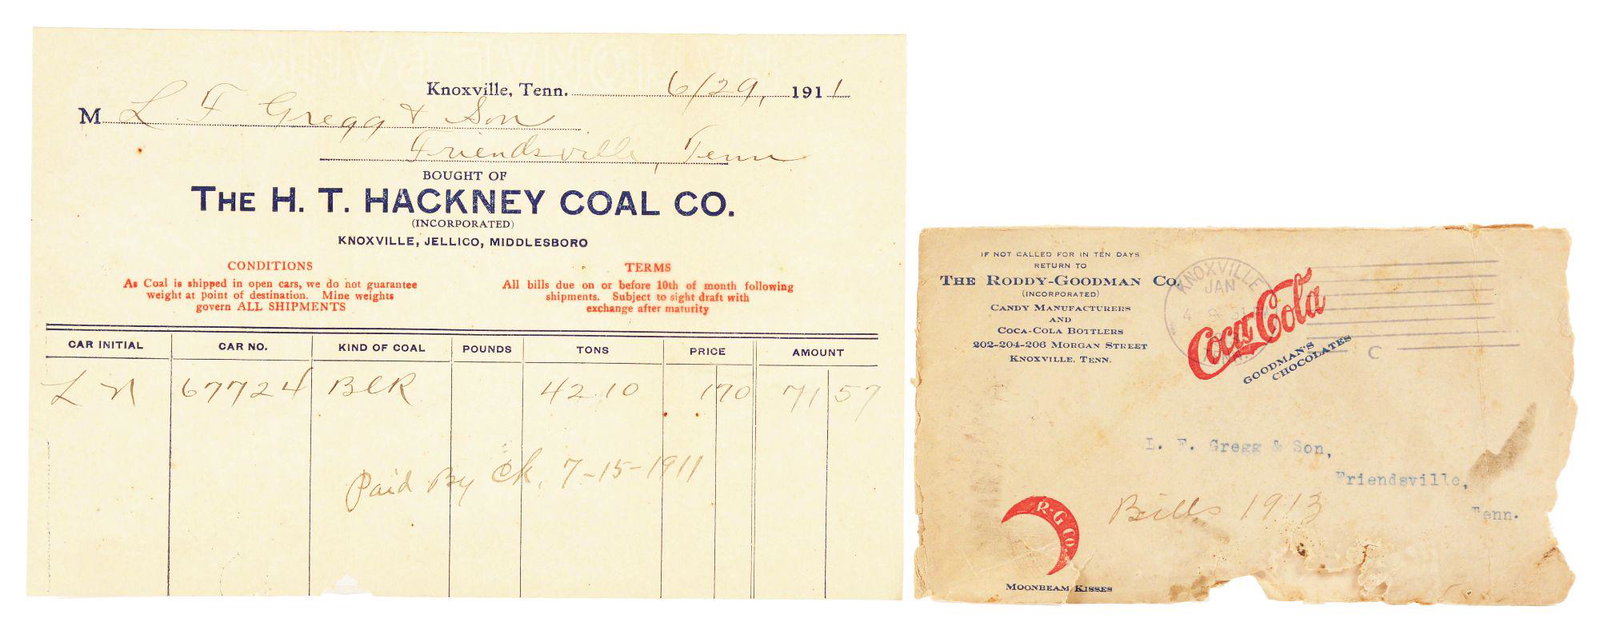 Knoxville, Tenn. 6/29, 1911
M L. F. Gregg & Son
Friendsville, Tenn
BOUGHT OF
THE H. T. HACKNEY COAL CO.
(INCORPORATED)
KNOXVILLE, JELLICO, MIDDLESBORO
CONDITIONS
As Coal is shipped in open cars, we do not guarantee
weight at point of destination. Mine weights
govern ALL SHIPMENTS
TERMS
All bills due on or before 10th of month following
shipments. Subject to sight draft with
exchange after maturity
CAR INITIAL CAR NO. KIND OF COAL POUNDS TONS PRICE AMOUNT
L N 67724 BLK 42 10 1 70 71 57
Paid By Ck. 7-15-1911
IF NOT CALLED FOR IN TEN DAYS
RETURN TO
THE RODDY-GOODMAN CO.
(INCORPORATED)
CANDY MANUFACTURERS
AND
COCA-COLA BOTTLERS
202-204-206 MORGAN STREET
KNOXVILLE, TENN.
KNOXVILLE
JAN
4
Coca-Cola
GOODMAN'S
CHOCOLATES
C
L. F. Gregg & Son,
Friendsville,
Tenn.
Bills 1913
R-G CO.
MOONBEAM KISSES